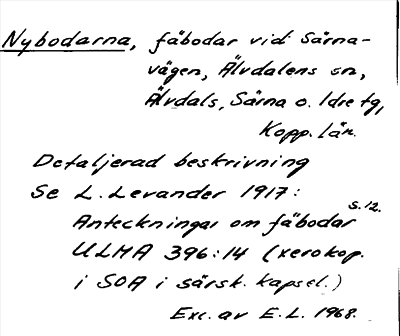 Nybodarna, fäbodar vid Särna-
vägen, Älvdalens sn,
Älvdals, Särna o. Idre tg,
Kopp. län.
Detaljerad beskrivning
Se L. Levander 1917:
s. 12.
Anteckningar om fäbodar
ULMA 396:14 (xerokop.
i SOA i särsk. kapsel.)
Exc. av E.L. 1968.